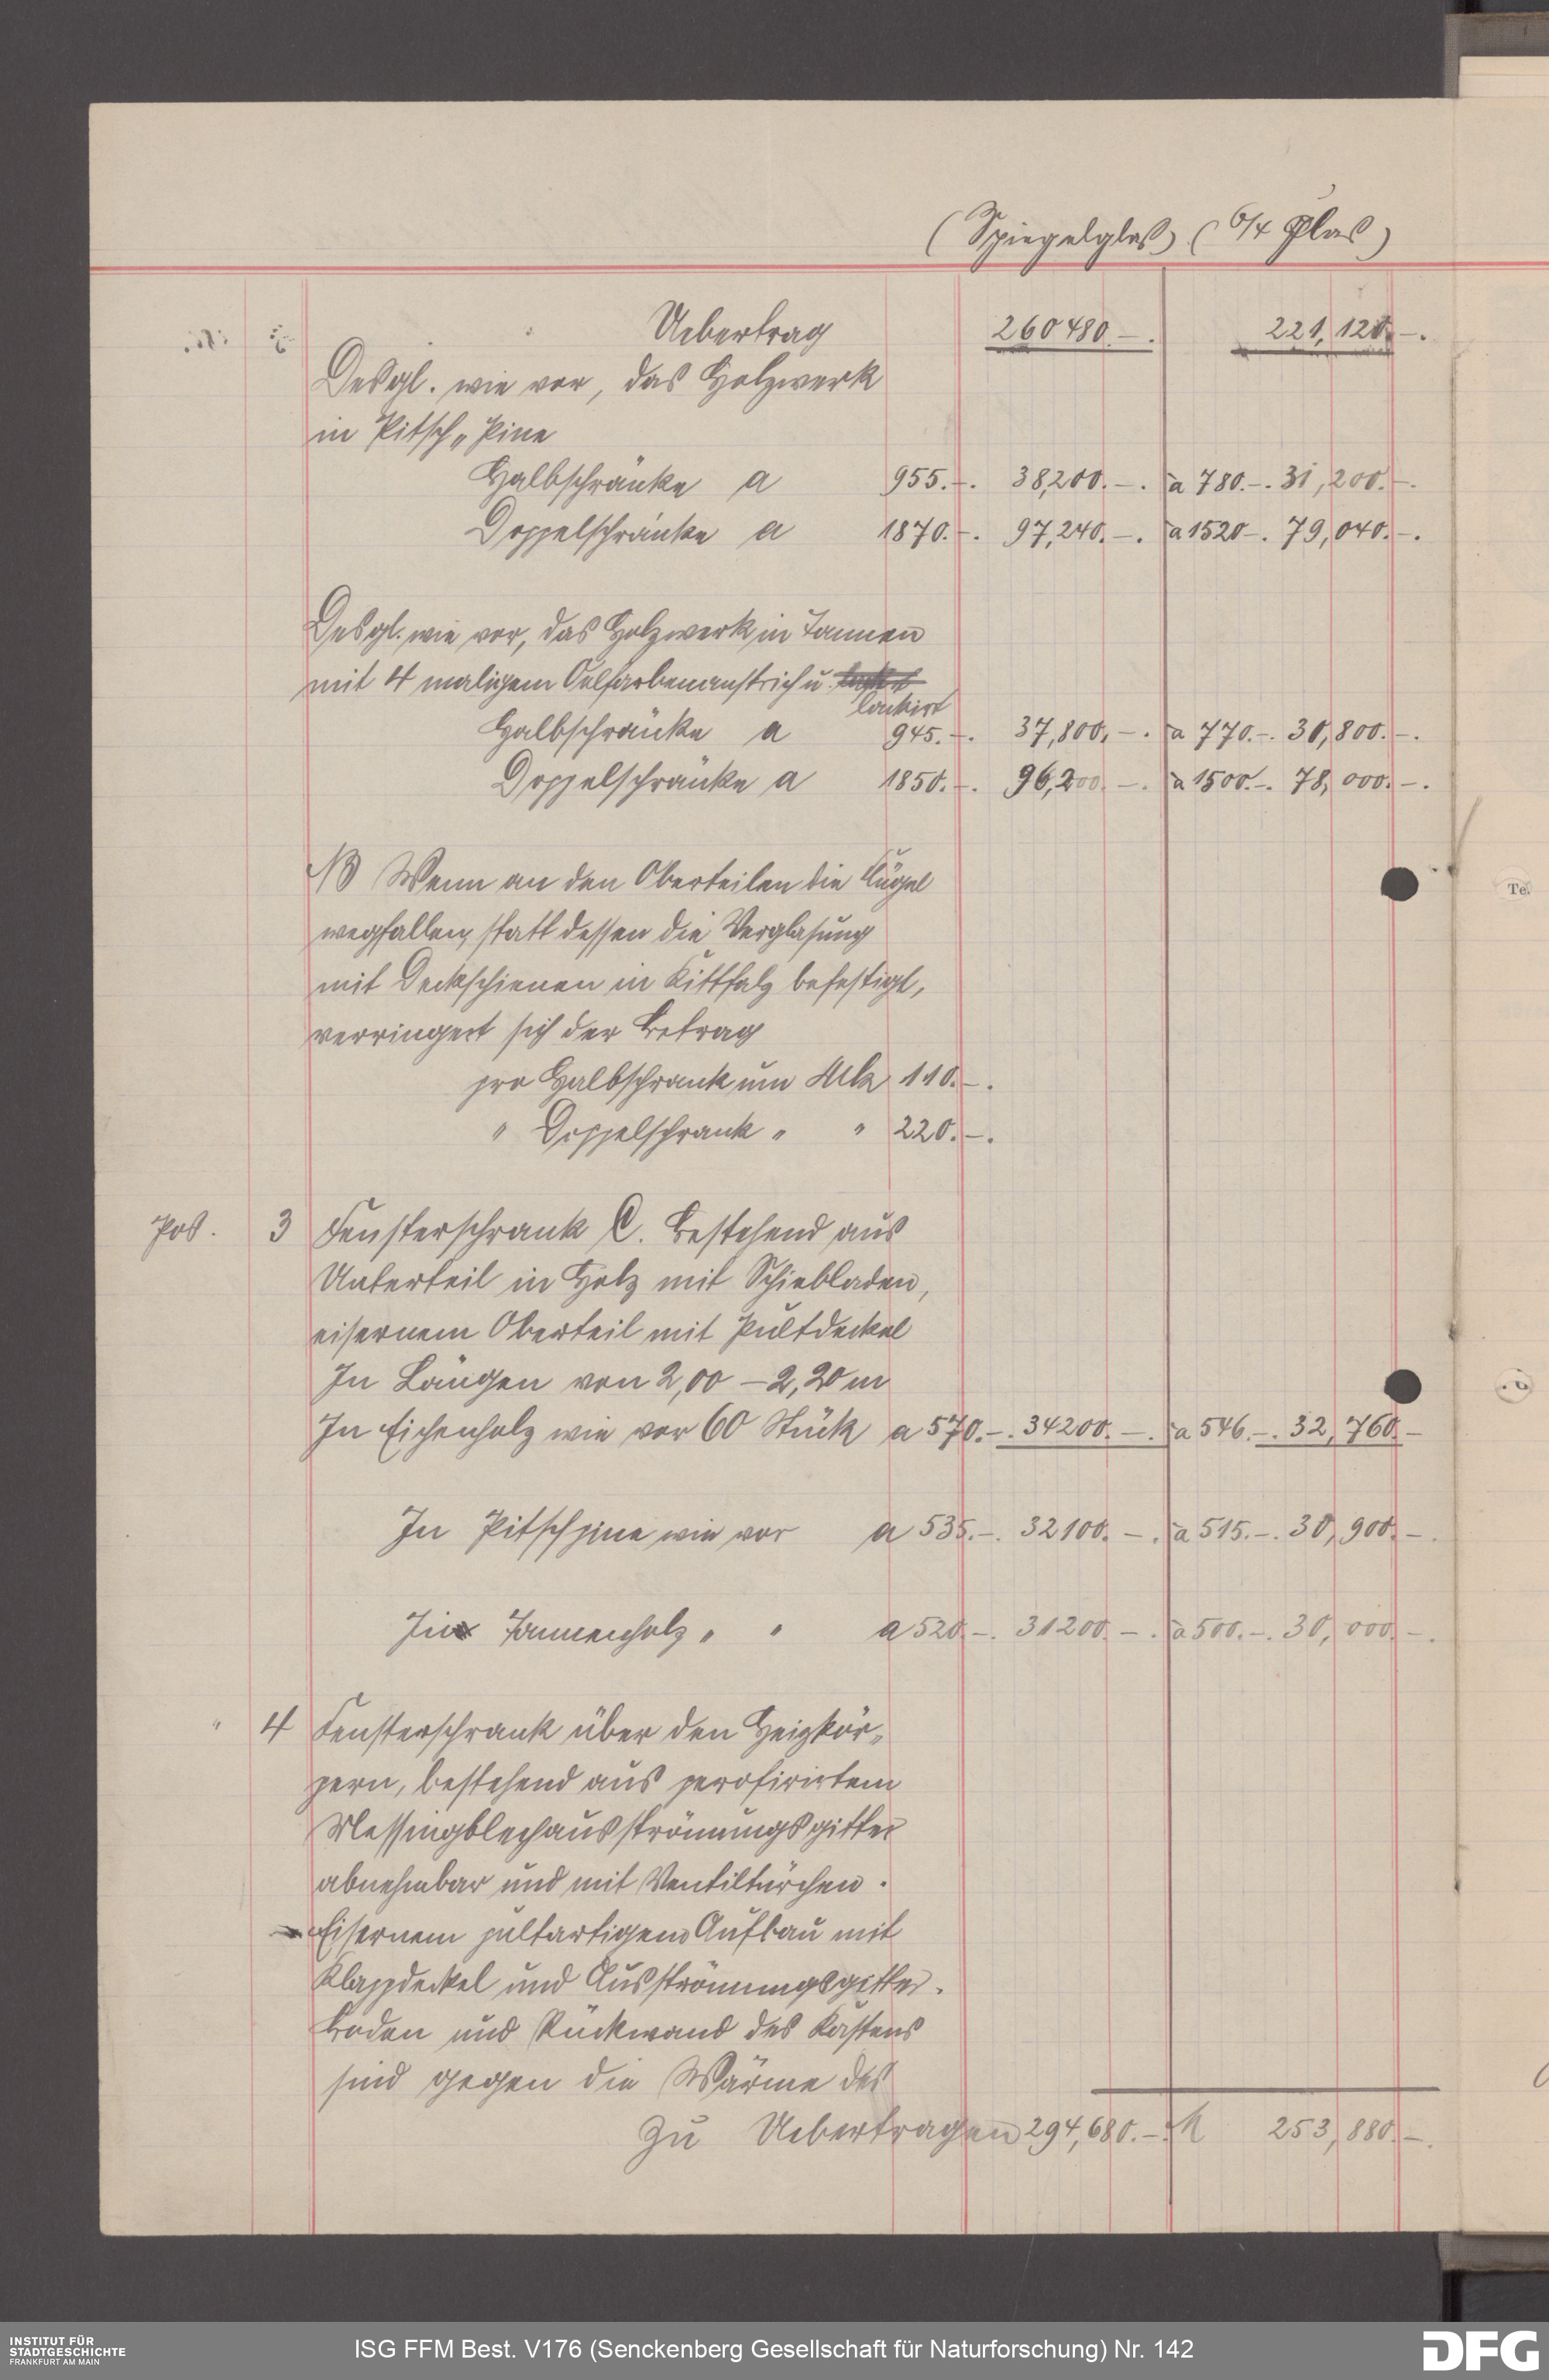 (Spiegelglas) (6/4 Glas)
Uebertrag 260480.–. 221,120.–.
Desgl. wie vor, das Holzwerk
in Pitsch„Pine
Halbschränke a 955.–. 38,200.–. à 780.–. 31,200.–.
Doppelschränke a 1870.–. 97,240.–. à 1520–. 79,040.–.
Desgl. wie vor, das Holzwerk in Tannen
mit 4 maligem Oelfarbenanstrich u.
lackirt
Halbschränke a 945.–. 37,800.–. à 770.–. 30,800.–.
Doppelschränke a 1850.–. 96,200.–. à 1500.–. 78,000.–.
NB Wenn an den Oberteilen die Flügel
wegfallen, statt dessen die Verglasung
mit Deckschienen in Kittfalz befestigt,
verringert sich der Betrag
pro Halbschrank um Mk 110.–.
" Doppelschrank " " 220.–.
Pos. 3 Fensterschrank C. Bestehend aus
Unterteil in Holz mit Schiebladen,
eisernem Oberteil mit Pultdeckel
In Längen von 2,00 – 2,20 m
In Eichenholz wie vor 60 Stück a 570.–. 34200.–. à 546.–. 32,760.–
In Pitschpine wie vor a 535.–. 32100.–. à 515.–. 30,900.–.
In Tannenholz " " a 520.–. 31200.–. à 500.–. 30,000.–.
" 4 Fensterschrank über den Heizkör„
pern, bestehend aus perofirirtem
Messingblechausströmungsgitter
abnehmbar und mit Ventiltürchen.
Eisernem pultartigem Aufbau mit
Klappdeckel und Ausströmungsgitter.
Boden und Rückwand des Kastens
sind gegen die Wärme des
Zu Uebertragen 294,680.–. M 253,880.–.
Te.
INSTITUT FÜR
STADTGESCHICHTE
FRANKFURT AM MAIN
ISG FFM Best. V176 (Senckenberg Gesellschaft für Naturforschung) Nr. 142
DFG